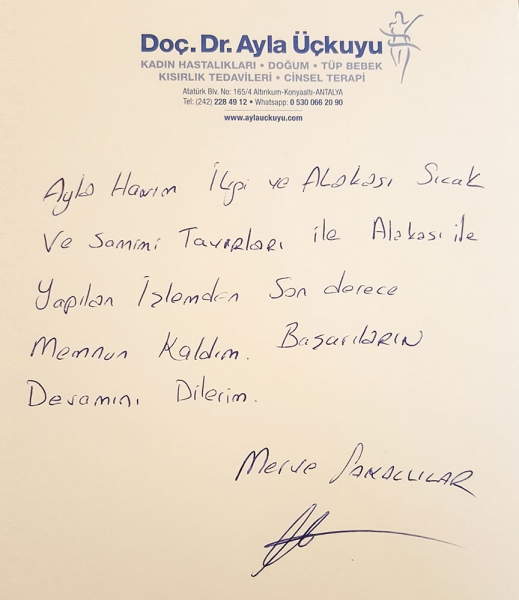 Doç. Dr. Ayla Üçkuyu
KADIN HASTALIKLARI • DOĞUM • TÜP BEBEK
KISIRLIK TEDAVİLERİ • CİNSEL TERAPİ
Atatürk Blv. No: 165/4 Altınkum-Konyaaltı-ANTALYA
Tel: (242) 228 49 12 • Whatsapp: 0 530 066 20 90
www.aylauckuyu.com
Ayla Hanım İlgi ve Alakası Sıcak
Ve Samimi Tavırları ile Alakası ile
Yapılan İşlemden Son derece
Memnun Kaldım. Başarıların
Devamını Dilerim.
Merve